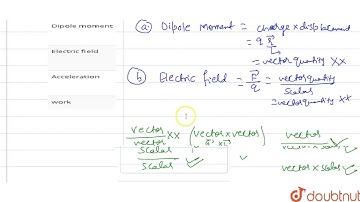 Dipole moment
Electric field
Acceleration
work
(a) Dipole Moment = charge × displacement
= q r⃗
= vector quantity ××
(b) Electric field = F⃗/q = vector quantity/scalar
= vector quantity ××
vector/vector ×× (vector × vector)
scalar/scalar ✓ ✓
vector/ ✓
vector × scalar ✓
doubtnut